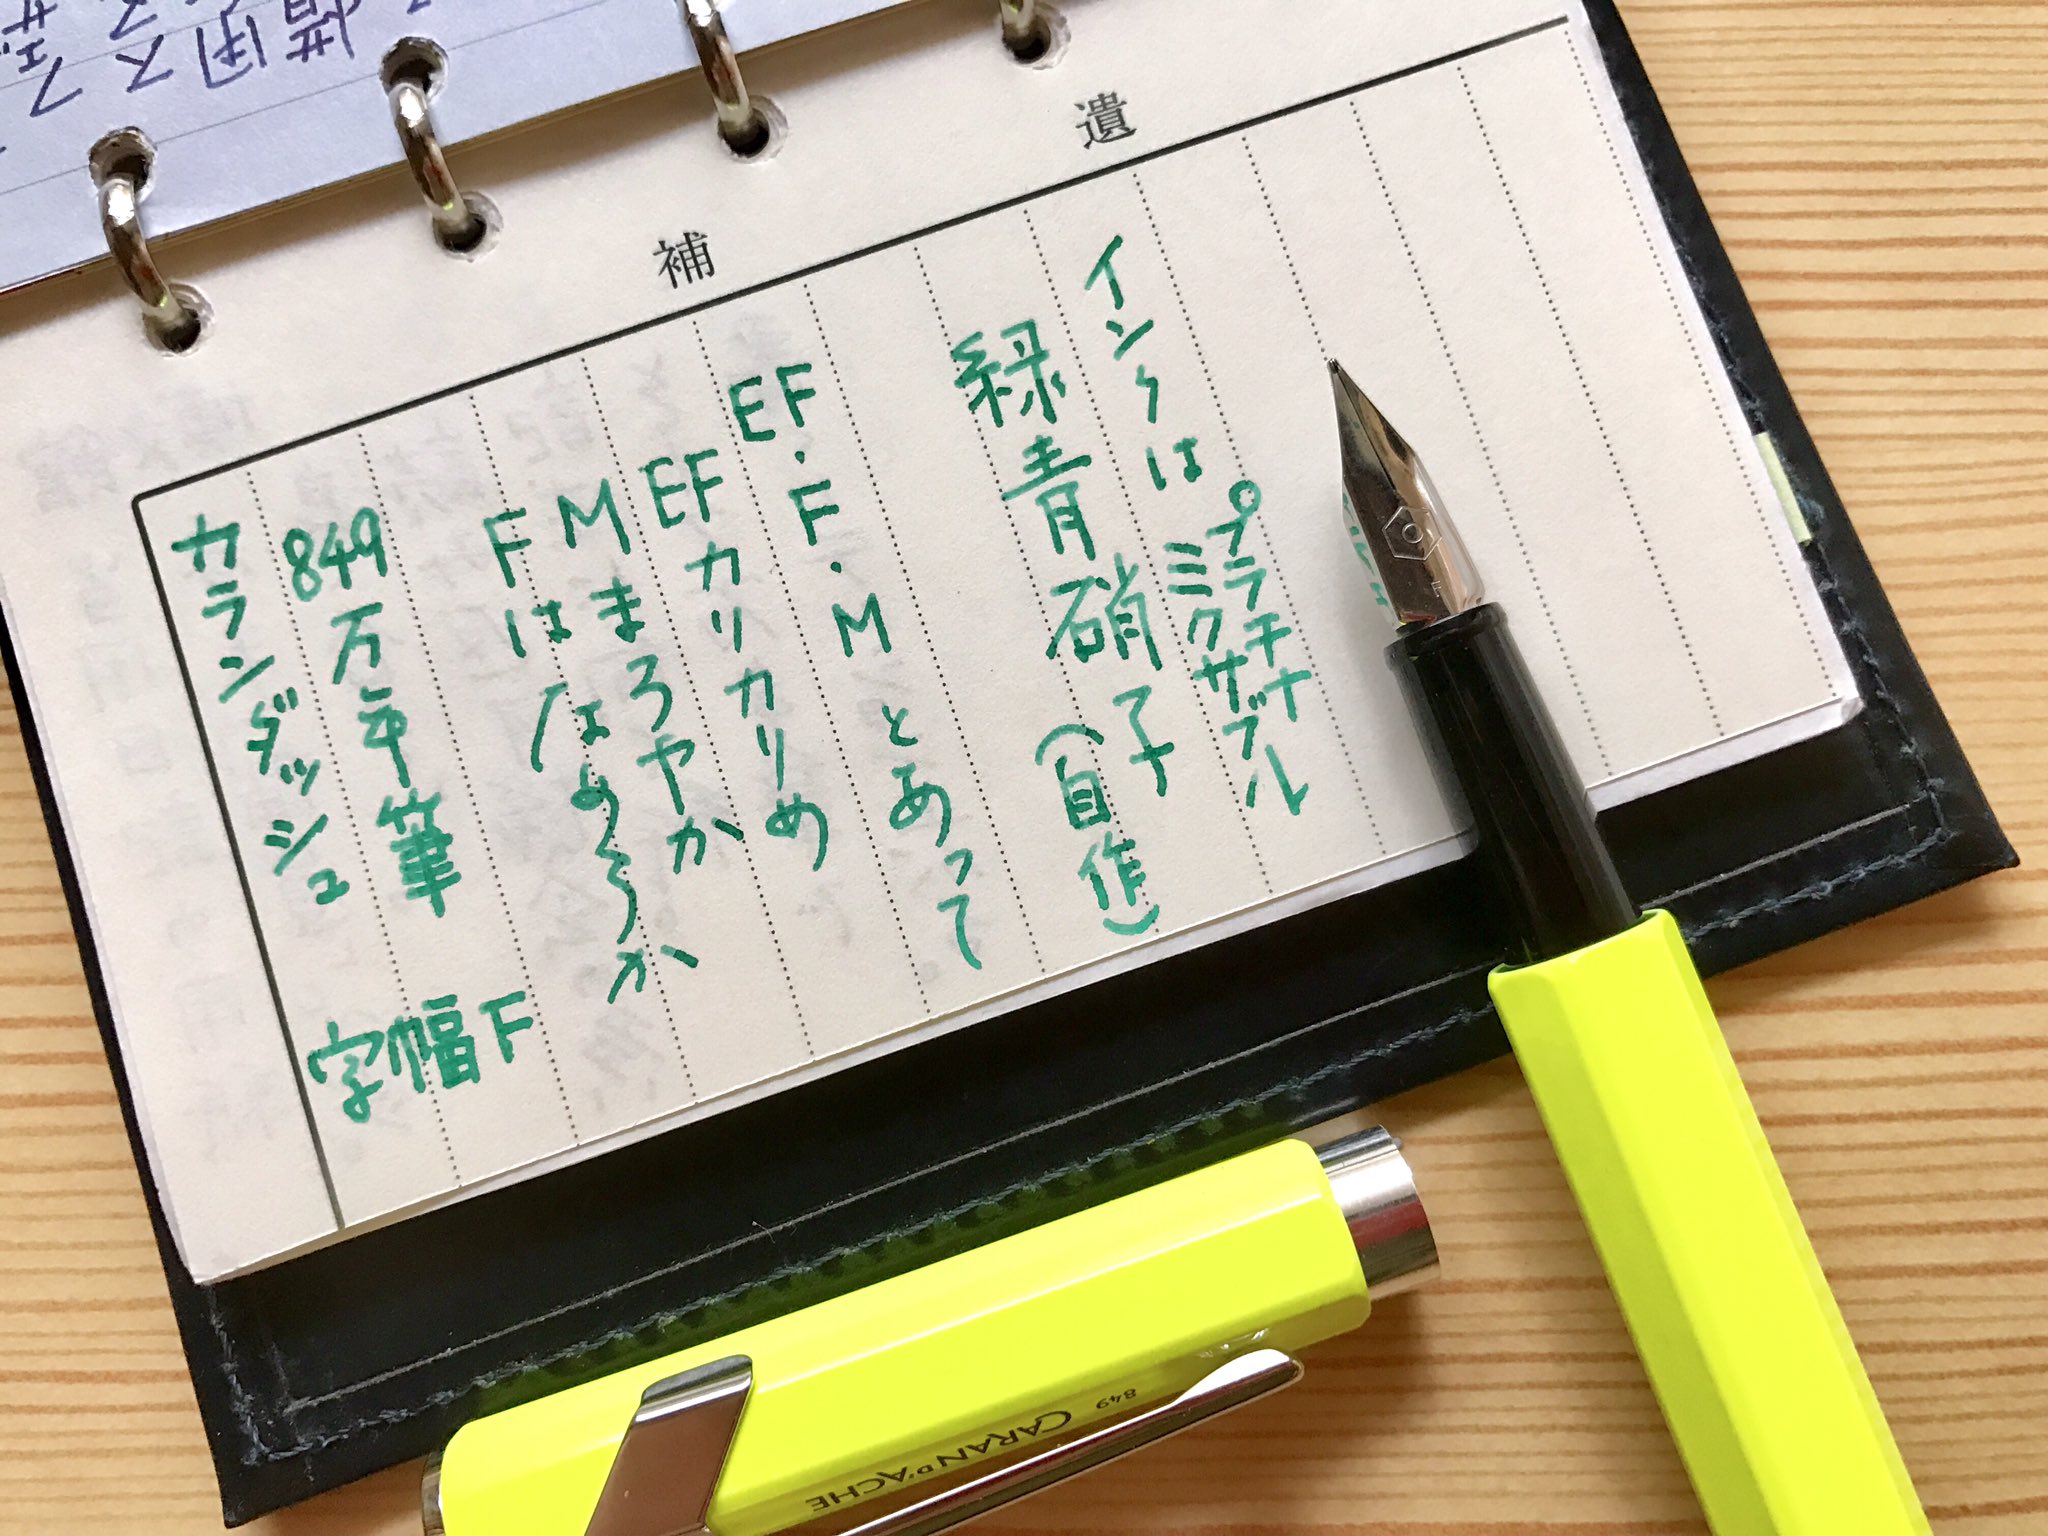 補遺
インクは
プラチナ
ミクサブル
緑青硝子(自作)
EF・F・Mとあって
EFカリカリめ
Mまろやか
Fはなめらか
849万年筆
字幅F
カランダッシュ
F
849
CARAN D'ACHE